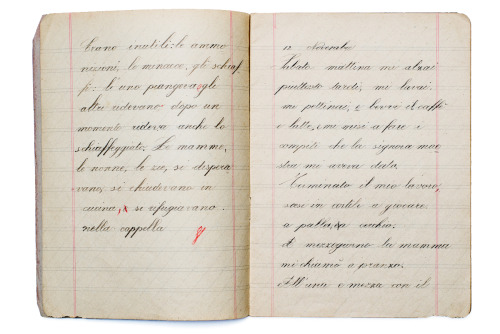 Erano inutili: le ammo
nizioni, le minacce, gli schiaf
fi: l'uno piangeva, gli
altri ridevano dopo un
momento rideva anche lo
schiaffeggiato. Le mamme,
le nonne, le zie, si dispera
vano, si chiudevano in
cucina, si rifugiavano
nella cappella
12 Novembre
Sabato mattina mi alzai
piuttosto tardi, mi lavai.
mi pettinai, e bevvi il caffè
e latte, e mi misi a fare i
compiti che la signora mae
stra mi aveva dato.
Terminato il mio lavoro,
scesi in cortile a giocare
a palla, ecchio.
A mezzogiorno la mamma
mi chiamò a pranzo.
All'una e mezza con il